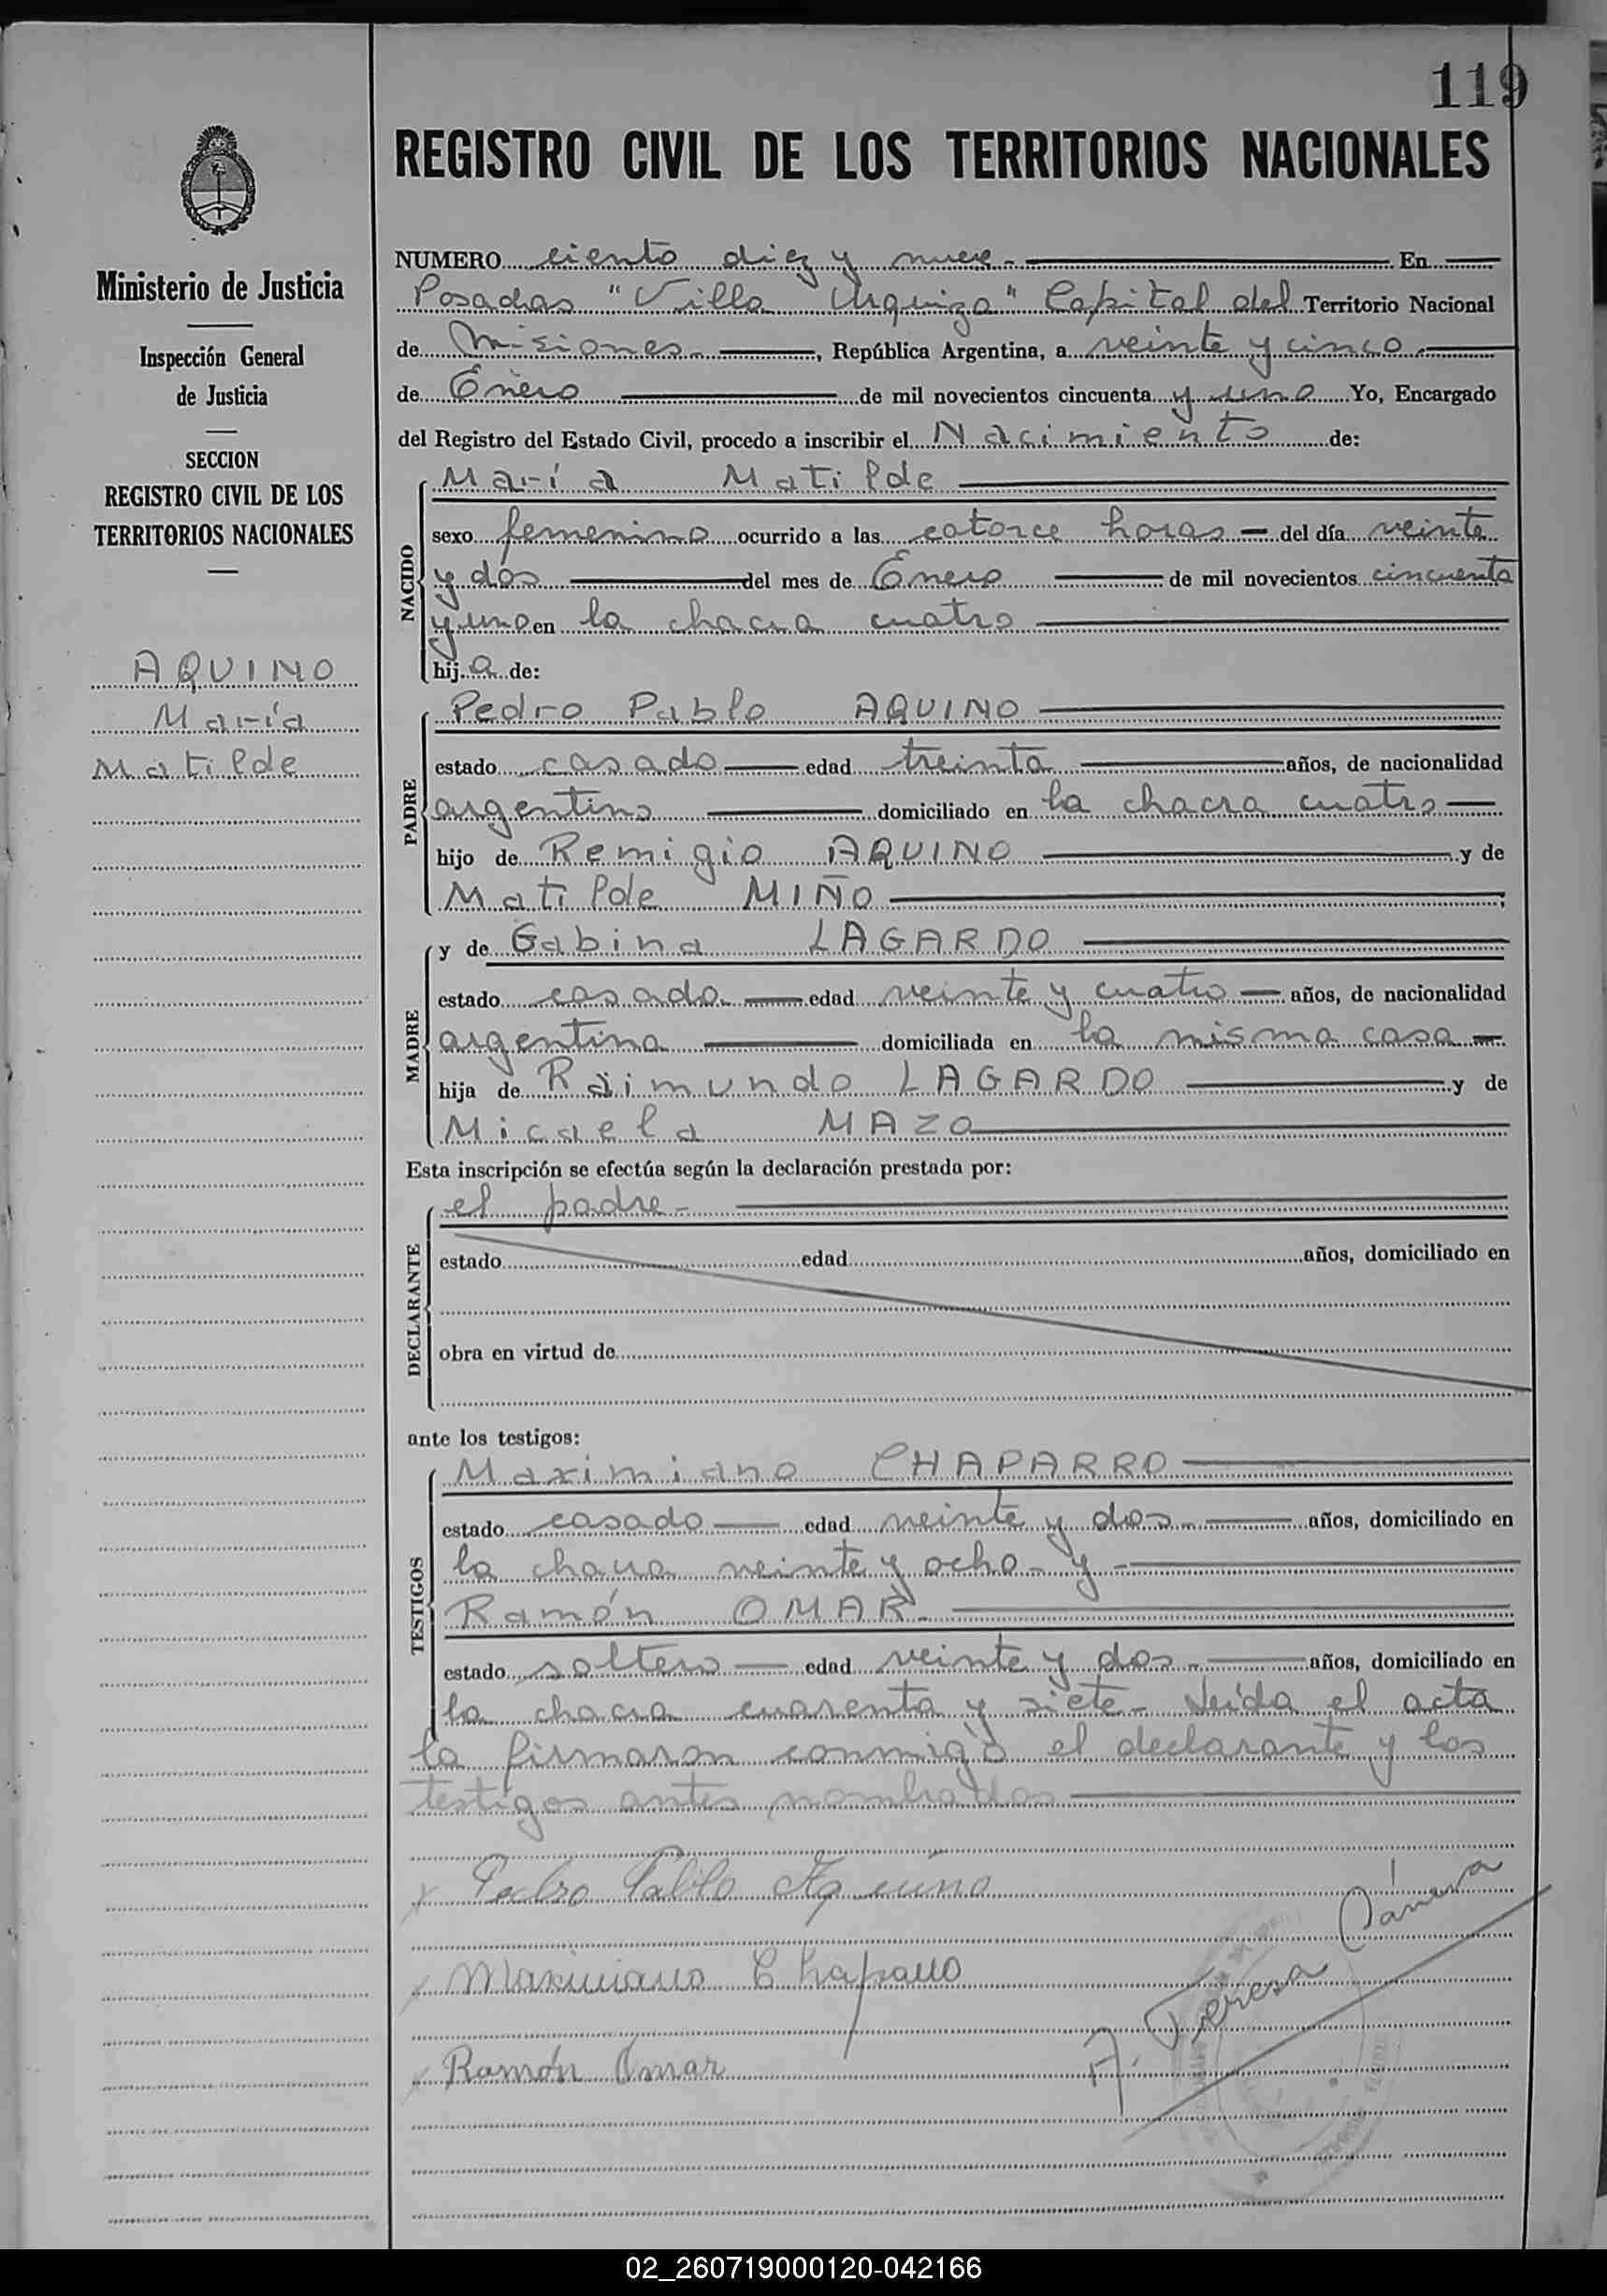 119
REGISTRO CIVIL DE LOS TERRITORIOS NACIONALES
Ministerio de Justicia
Inspección General
de Justicia
SECCION
REGISTRO CIVIL DE LOS
TERRITORIOS NACIONALES
AQUINO
María
Matilde
NUMERO ciento diez y nueve.- En
Posadas "Villa Urquiza" Capital del Territorio Nacional
de Misiones.-, República Argentina, a veinte y cinco.-
de Enero de mil novecientos cincuenta y uno Yo, Encargado
del Registro del Estado Civil, procedo a inscribir el Nacimiento de:
NACIDO
María Matilde
sexo femenino ocurrido a las catorce horas — del día veinte
y dos del mes de Enero de mil novecientos cincuenta
y uno en la chacra cuatro
hija de:
PADRE
Pedro Pablo AQUINO
estado casado edad treinta años, de nacionalidad
argentino domiciliado en la chacra cuatro
hijo de Remigio AQUINO y de
Matilde MIÑO
MADRE
y de Gabina LAGARDO
estado casada edad veinte y cuatro años, de nacionalidad
argentina domiciliada en la misma casa
hija de Raimundo LAGARDO y de
Micaela MAZA
Esta inscripción se efectúa según la declaración prestada por:
DECLARANTE
el padre.-
estado edad años, domiciliado en
obra en virtud de
ante los testigos:
TESTIGOS
Maximiano CHAPARRO
estado casado edad veinte y dos.- años, domiciliado en
la chacra veinte y ocho.- y.-
Ramón OMAR.-
estado soltero edad veinte y dos.- años, domiciliado en
la chacra cuarenta y siete.- Leída el acta
la firmaron conmigo el declarante y los
testigos antes nombrados
Pedro Pablo Aquino
Maximiano Chaparro
A. Teresa
Ramón Omar
02_260719000120-042166